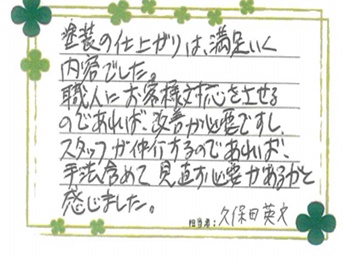 塗装の仕上がりは、満足いく
内容でした。
職人にお客様対応をさせる
のであれば、改善が必要ですし、
スタッフが仲介するのであれば、
手法含めて、見直す必要があるかと
感じました。
担当者：久保田英文